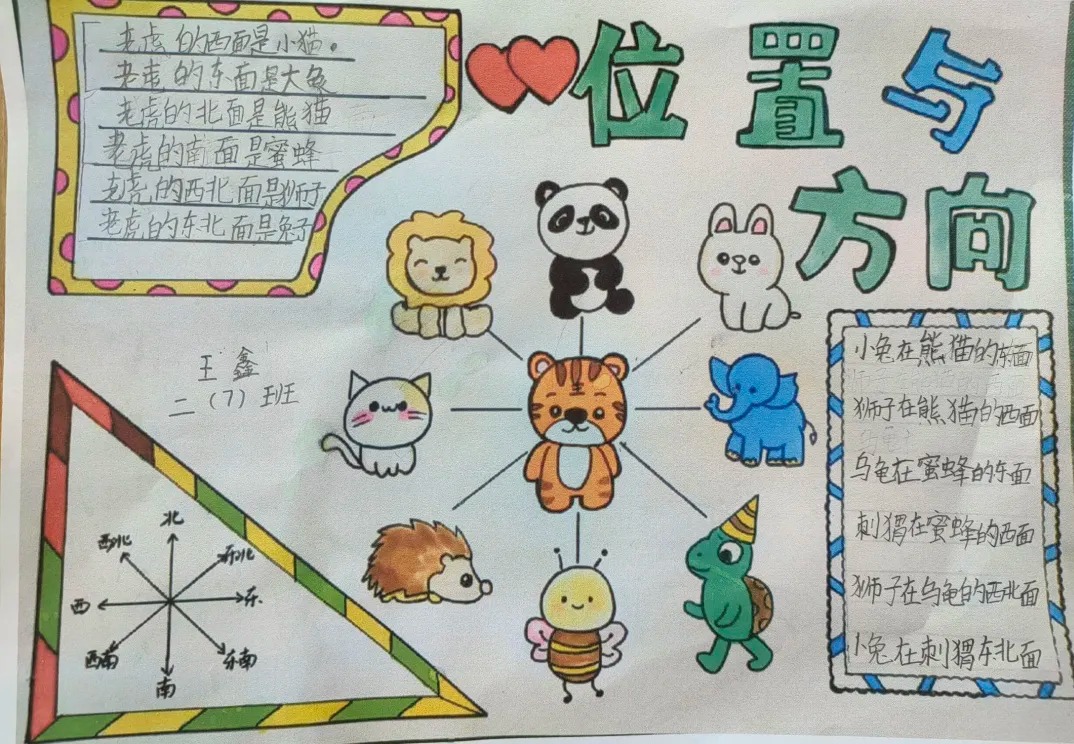 位置与
方向
老虎的西面是小猫。
老虎的东面是大象
老虎的北面是熊猫
老虎的南面是蜜蜂
老虎的西北面是狮子
老虎的东北面是兔子
王鑫
二（7）班
王
北
西北
东北
西
东
西南
东南
南
小兔在熊猫的东面
狮子在熊猫的西面
乌龟在蜜蜂的东面
刺猬在蜜蜂的西面
狮子在乌龟的西北面
小兔在刺猬东北面